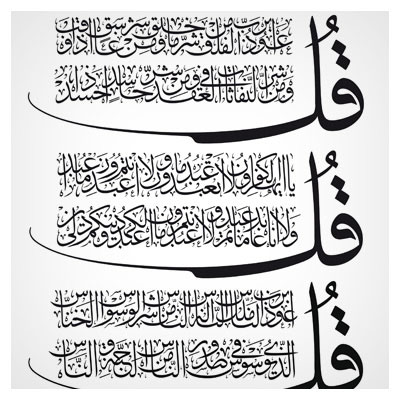 قُل أعوذ برب الفلق من شر ما خلق ومن شر غاسق إذا وقب
ومن شر النفاثات في العقد ومن شر حاسد إذا حسد
قُل يا أيها الكافرون لا أعبد ما تعبدون ولا أنتم عابدون ما أعبد
ولا أنا عابد ما عبدتم ولا أنتم عابدون ما أعبد لكم دينكم ولي دين
قُل أعوذ برب الناس ملك الناس إله الناس من شر الوسواس الخناس
الذي يوسوس في صدور الناس من الجنة والناس